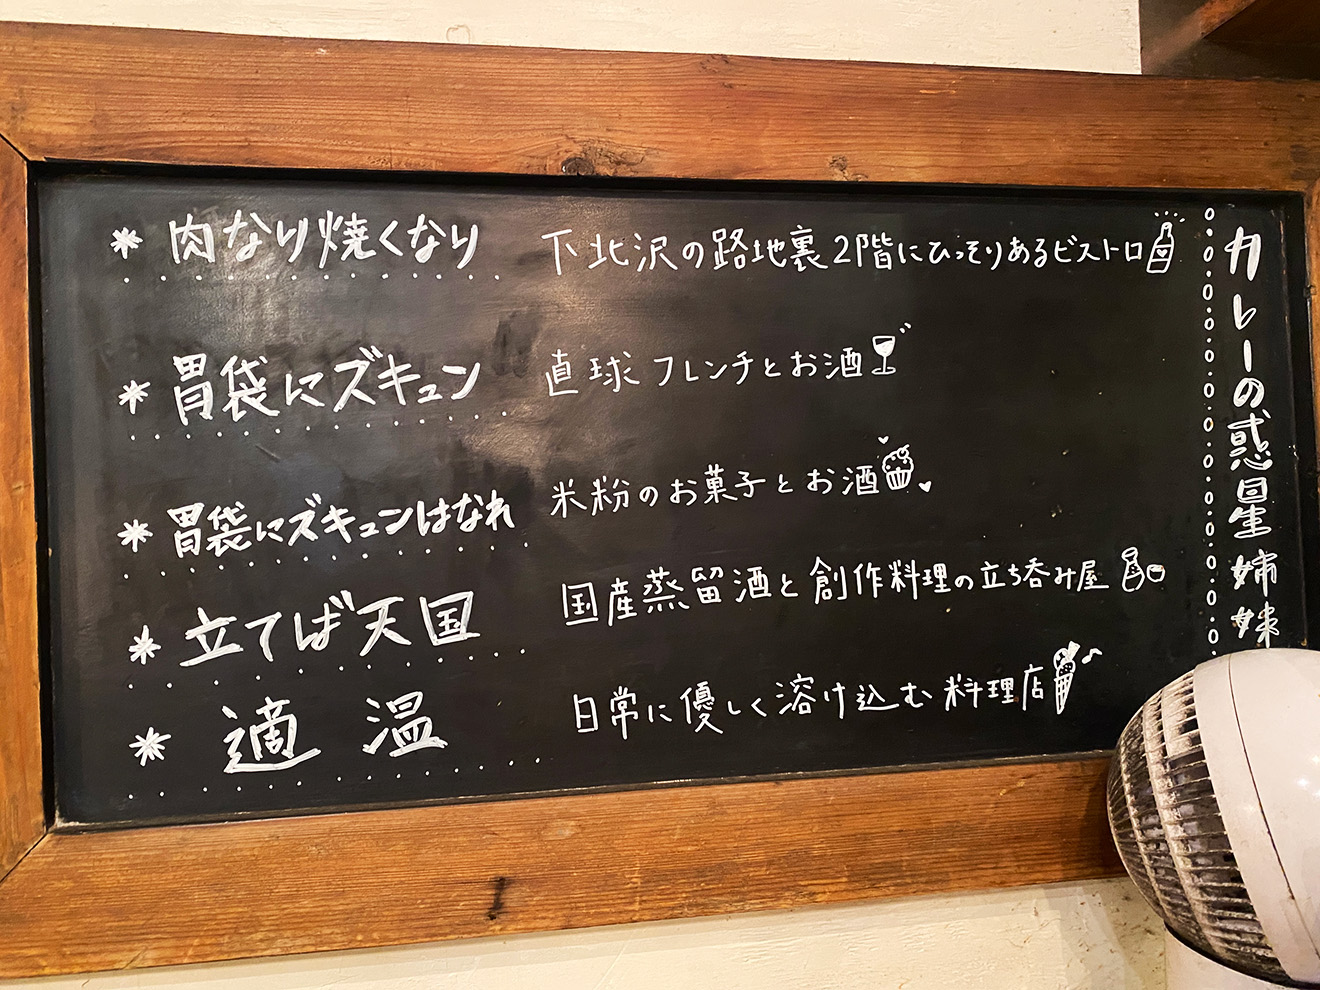 カレーの惑星姉妹
* 肉なり焼くなり 下北沢の路地裏2階にひっそりあるビストロ
* 胃袋にズキュン 直球フレンチとお酒
* 胃袋にズキュンはなれ 米粉のお菓子とお酒
* 立てば天国 国産蒸留酒と創作料理の立ち呑み屋
* 適温 日常に優しく溶け込む料理店